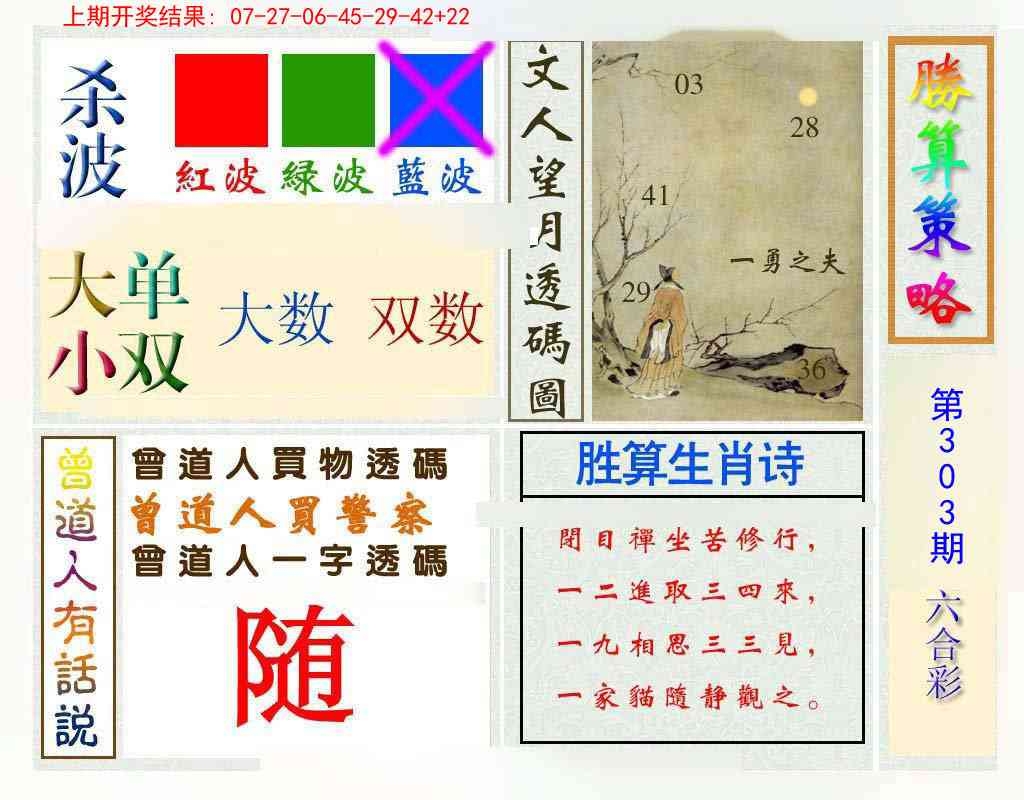 上期开奖结果: 07-27-06-45-29-42+22
杀波
紅波 緑波 藍波
大单
小双
大数 双数
文人望月透碼圖
03
28
41
一勇之夫
29
36
勝算策略
第303期
六合彩
曾道人有話説
曾道人買物透碼
曾道人買警察
曾道人一字透碼
随
胜算生肖诗
閉目禪坐苦修行，
一二進取三四來，
一九相思三三見，
一家貓隨静觀之。